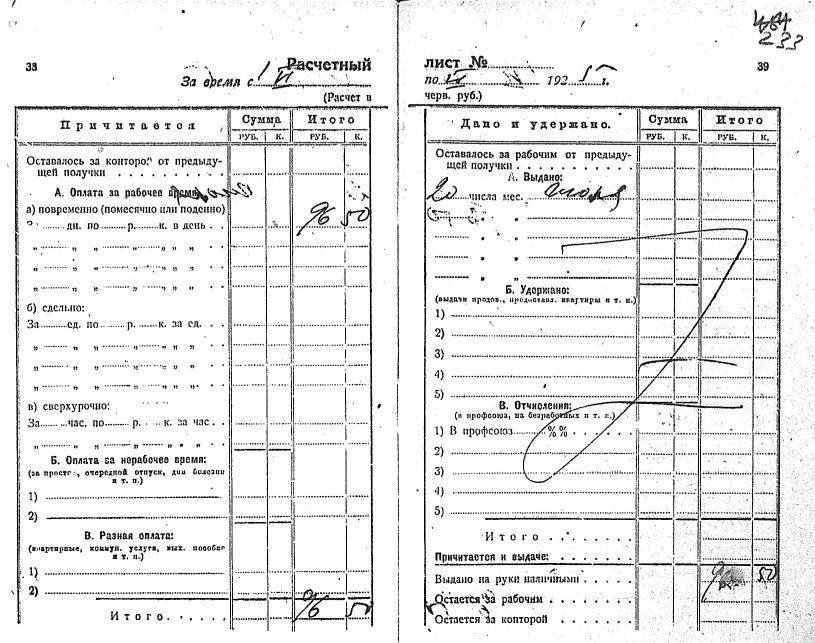 233
38
Расчетный
За время с 1 VI
(Расчет в
Причитается
Сумма
Итого
РУБ. К. РУБ. К.
Оставалось за конторой от предыду-
щей получки
А. Оплата за рабочее время:
а) повременно (помесячно или поденно)
96 50
З дн. по р. к. в день
„ „ „ „ „ „ „
„ „ „ „ „ „ „
„ „ „ „ „ „ „
б) сдельно:
За ед. по р. к. за ед.
„ „ „ „ „ „ „
„ „ „ „ „ „ „
„ „ „ „ „ „ „
в) сверхурочно:
За час. по р. к. за час.
„ „ „ „ „ „ „
Б. Оплата за нерабочее время:
(за простой, очередной отпуск, дни болезни
и т. п.)
1)
2)
В. Разная оплата:
(квартирные, коммун. услуги, вых. пособие
и т. п.)
1)
2)
Итого 96 50
лист №
39
по 192 5 г.
черв. руб.)
Дано и удержано.
Сумма
Итого
РУБ. К. РУБ. К.
Оставалось за рабочим от предыду-
щей получки
А. Выдано:
20 числа мес.
„ „
„ „
„ „
„ „
Б. Удержано:
(выдачи продов., предоставл. квартиры и т. п.)
1)
2)
3)
4)
5)
В. Отчисления:
(в профсоюз, на безработных и т. п.)
1) В профсоюз %%
2)
3)
4)
5)
Итого
Причитается к выдаче:
Выдано на руки наличными 50
Остается за рабочим
Остается за конторой